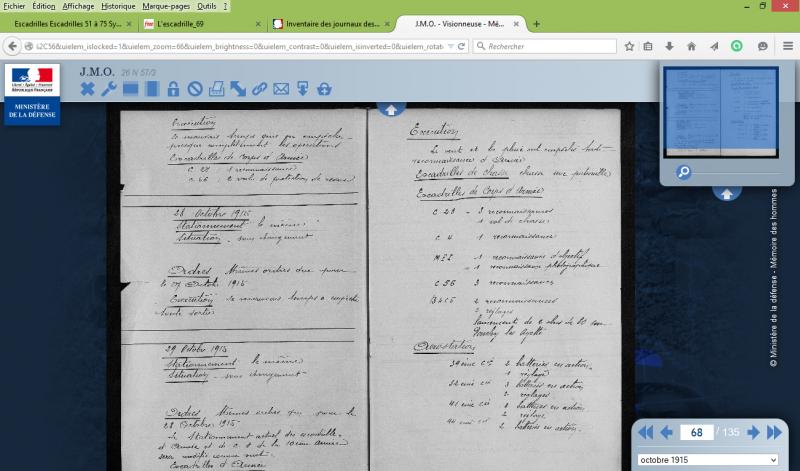 Fichier Édition Affichage Historique Marque-pages Outils ?
Escadrilles Escadrilles 51 à 75 Sy...
free L'escadrille_69
Inventaire des journaux des...
J.M.O. - Visionneuse - Mé...
i2C56&uielem_islocked=1&uielem_zoom=66&uielem_brightness=0&uielem_contrast=0&uielem_isinverted=0&uielem_rotat
Rechercher
J.M.O. 26 N 57/3
Liberté • Égalité • Fraternité
RÉPUBLIQUE FRANÇAISE
MINISTÈRE
DE LA DÉFENSE
Execution
Le mauvais temps
presque complètement les opérations
Escadrilles de Corps d'Armée
1 reconnaissance
2 vols de protection de
28 Octobre 1915
Stationnement le même
Situation sans changement
Ordres Mêmes ordres que pour
le 27 Octobre 1915
Execution Le mauvais temps a empêché
toute sortie
29 Octobre 1915
Stationnement le même
Situation sans changement
Ordres Mêmes ordres que pour le
28 Octobre 1915
Le Stationnement actuel des escadrilles
d'Armée et de C. A. de la 10ème Armée
sera modifié comme suit
Escadrilles d'Armée
Execution
Le vent et la pluie ont empêché toute
reconnaissance d'Armée
Escadrilles de chasse chacun une patrouille
Escadrilles de Corps d'Armée
C 28 - 3 reconnaissances
1 vol de chasse
C 4 1 reconnaissance
1 reconnaissance d'objectif
1 reconnaissance photographique
C 56 3 reconnaissances
2 reconnaissances
2 réglages
Lancement de 2 obus de 90 sur
Aérostation
39ème Cie 2 batteries en action
1 réglage
32ème Cie 3 batteries en action
2 réglages
41ème Cie 3 batteries en action
2 réglages
44ème Cie 2 batteries en action.
© Ministère de la défense - Mémoire des hommes
68 / 135
octobre 1915